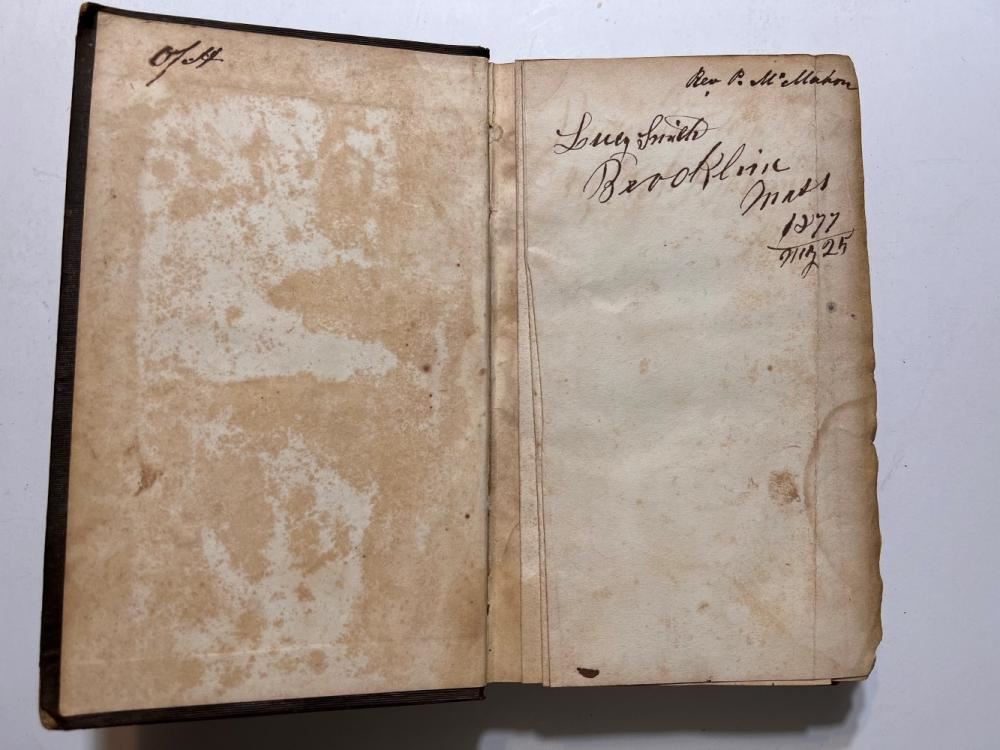 Rev P. McMahon
Lucy Smith
Brooklin
Mass
1877
25